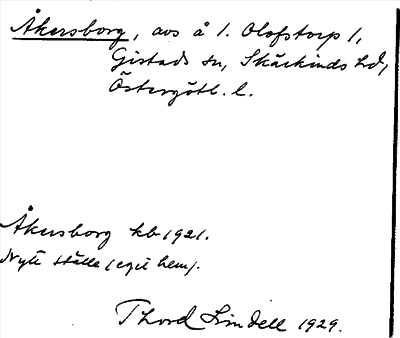 Åkersborg, avs å 1. Olofstorp 1,
Gistads sn, Skärkinds hd,
Östergötl. l.
Åkersborg kb 1921.
Nytt ställe (eget hem).
Thord Lindell 1929.